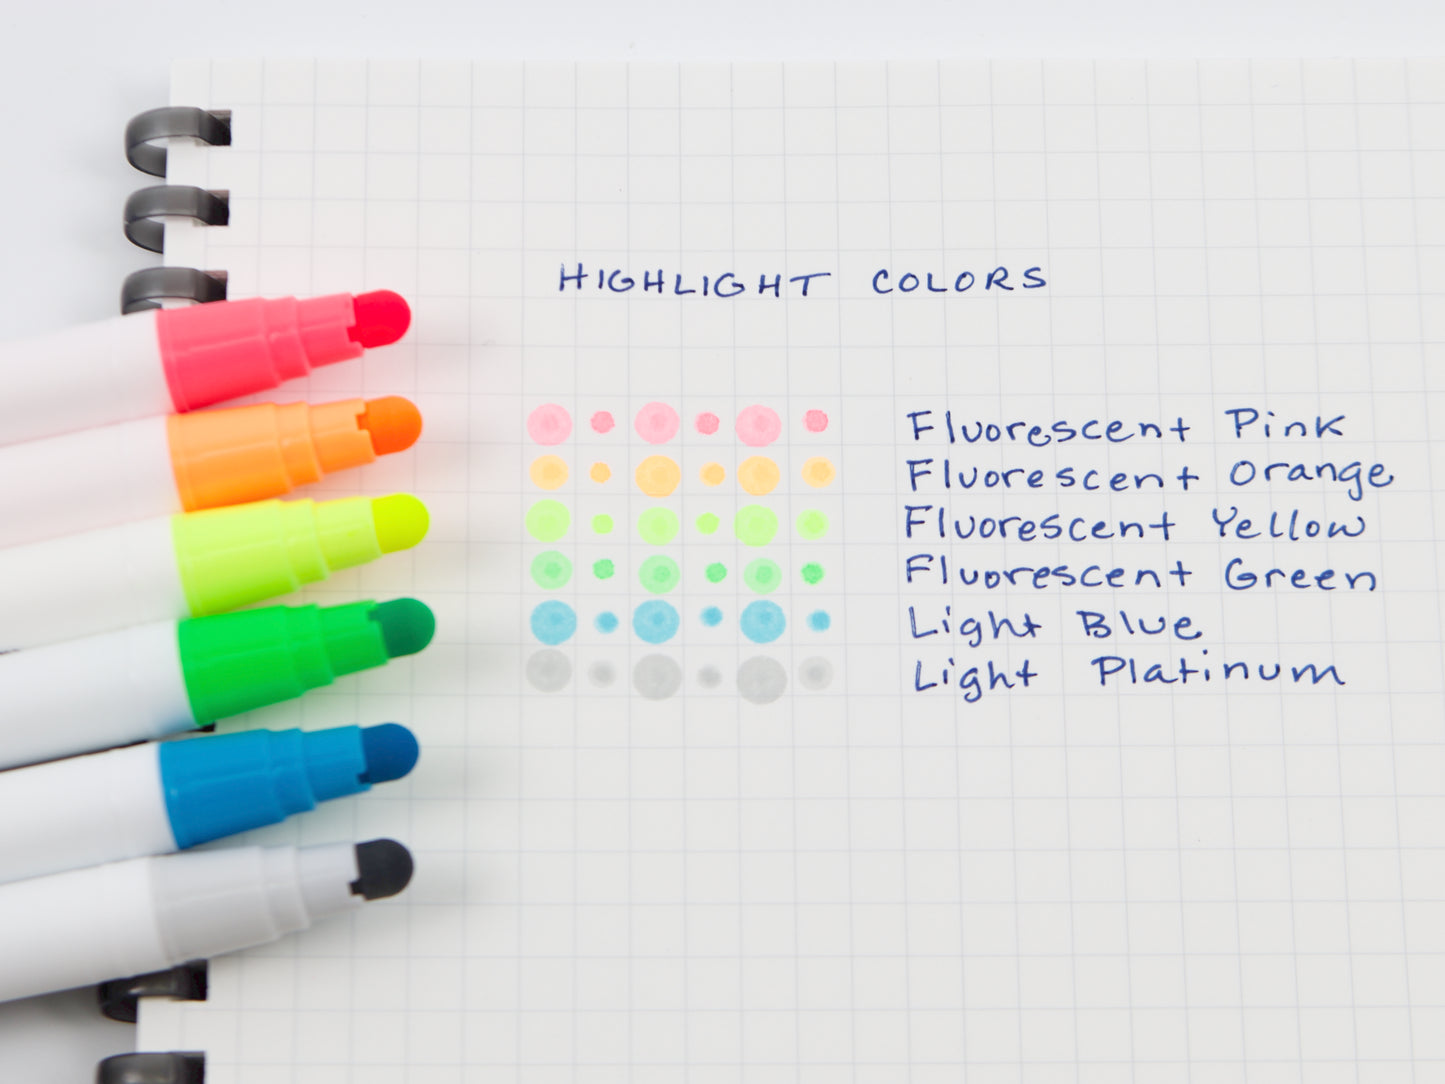 HIGHLIGHT COLORS
Fluorescent Pink
Fluorescent Orange
Fluorescent Yellow
Fluorescent Green
Light Blue
Light Platinum